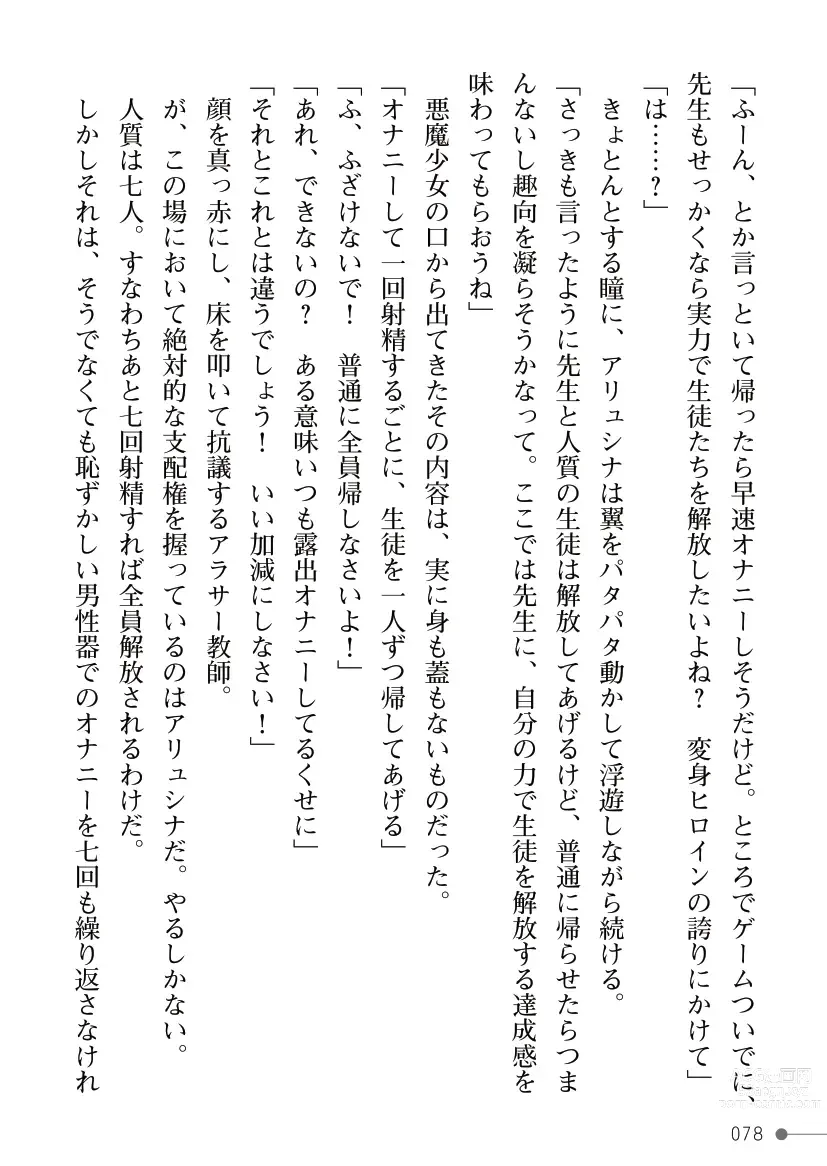 「ふーん、とか言っといて帰ったら早速オナニーしそうだけど。ところでゲームついでに、
先生もせっかくなら実力で生徒たちを解放したいよね？　変身ヒロインの誇りにかけて」
「は……？」
きょとんとする瞳に、アリュシナは翼をパタパタ動かして浮遊しながら続ける。
「さっきも言ったように先生と人質の生徒は解放してあげるけど、普通に帰らせたらつま
んないし趣向を凝らそうかなって。ここでは先生に、自分の力で生徒を解放する達成感を
味わってもらおうね」
悪魔少女の口から出てきたその内容は、実に身も蓋もないものだった。
「オナニーして一回射精するごとに、生徒を一人ずつ帰してあげる」
「ふ、ふざけないで！　普通に全員帰しなさいよ！」
「あれ、できないの？　ある意味いつも露出オナニーしてるくせに」
「それとこれとは違うでしょう！　いい加減にしなさい！」
顔を真っ赤にし、床を叩いて抗議するアラサー教師。
が、この場において絶対的な支配権を握っているのはアリュシナだ。やるしかない。
人質は七人。すなわちあと七回射精すれば全員解放されるわけだ。
しかしそれは、そうでなくても恥ずかしい男性器でのオナニーを七回も繰り返さなけれ
078